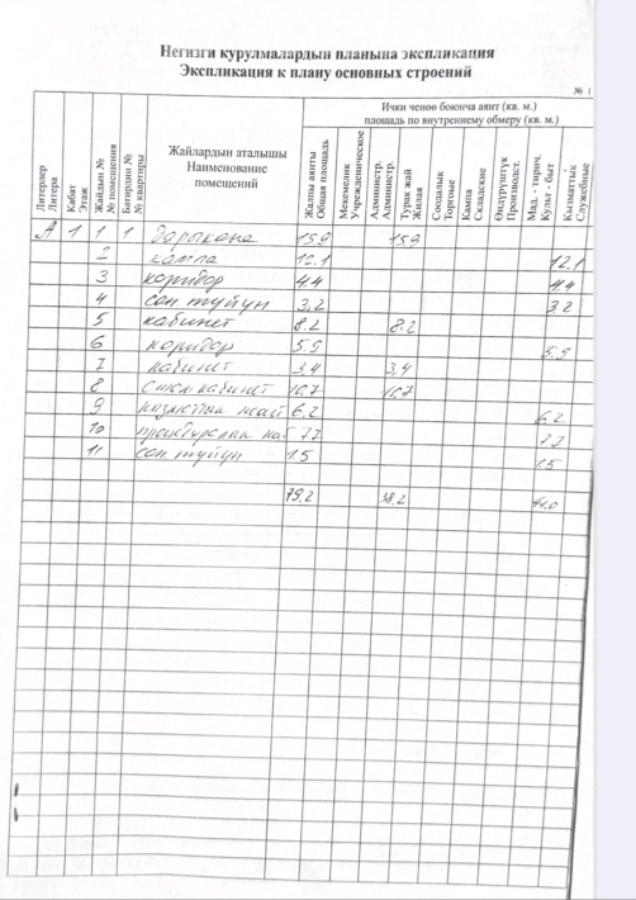 Негизги курулмалардын планына экспликация
Экспликация к плану основных строений
№ 1
Литерлер
Литера
Кабат
Этаж
Жайдын №
№ помещения
Батирдин №
№ квартиры
Жайлардын аталышы
Наименование
помещений
Ички ченөө боюнча аянт (кв. м.)
площадь по внутреннему обмеру (кв. м.)
Жалпы аянты
Общая площадь
Мекемелик
Учрежденическое
Администр.
Администр.
Турак жай
Жилая
Соодалык
Торговые
Кампа
Складские
Өндүрүштүк
Производст.
Мад. - тирич.
Культ - быт
Кызматтык
Служебные
А 1 1 1 дарыкана 15.9 15.9
2 кампа 12.1
3 коридор 4.4 4.4
4 сан түйүн 3,2 3.2
5 кабинет 8.2 8.2
6 коридор 5.9 5.9
7 кабинет 3,4 3,4
8 стом кабинет 10,7 10,7
9 6.2 6.2
10 7.7 7.7
11 сан түйүн 1.5 1.5
79.2 38.2 41.0